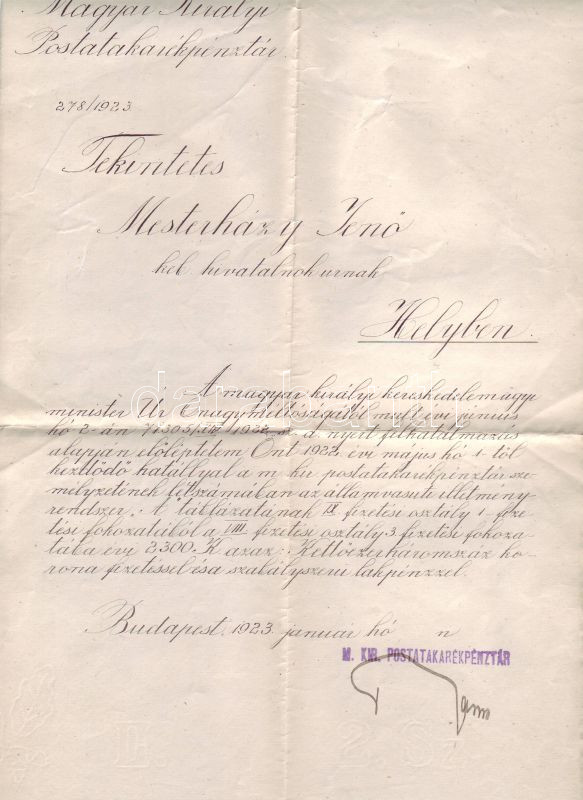 Magyar Királyi
Postatakarékpénztár
278/1923
Tekintetes
Mesterházy Jenő
keb. hivatalnok urnak
Helyben.
A magyar királyi kereskedelemügyi
minister Úr Őnagyméltóságától mult évi junius
hó 2-án 1922 sz. a. nyert felhatalmazás
alapján előléptetem Önt 1922 évi május hó 1-től
kezdődő hatállyal a m. kir. postatakarékpénztár sze-
mélyzetének létszámában az államvasuti illetmény
rendszer A táblázatának IX fizetési osztály 1 fize-
tési fokozatából a VIII fizetési osztály 3 fizetési fokoza-
tába évi 2300 K azaz: Kettőezerháromszáz ko-
rona fizetéssel és a szabályszerű lakpénzzel.
Budapest, 1923 január hó n
M. KIR. POSTATAKARÉKPÉNZTÁR
darabanth